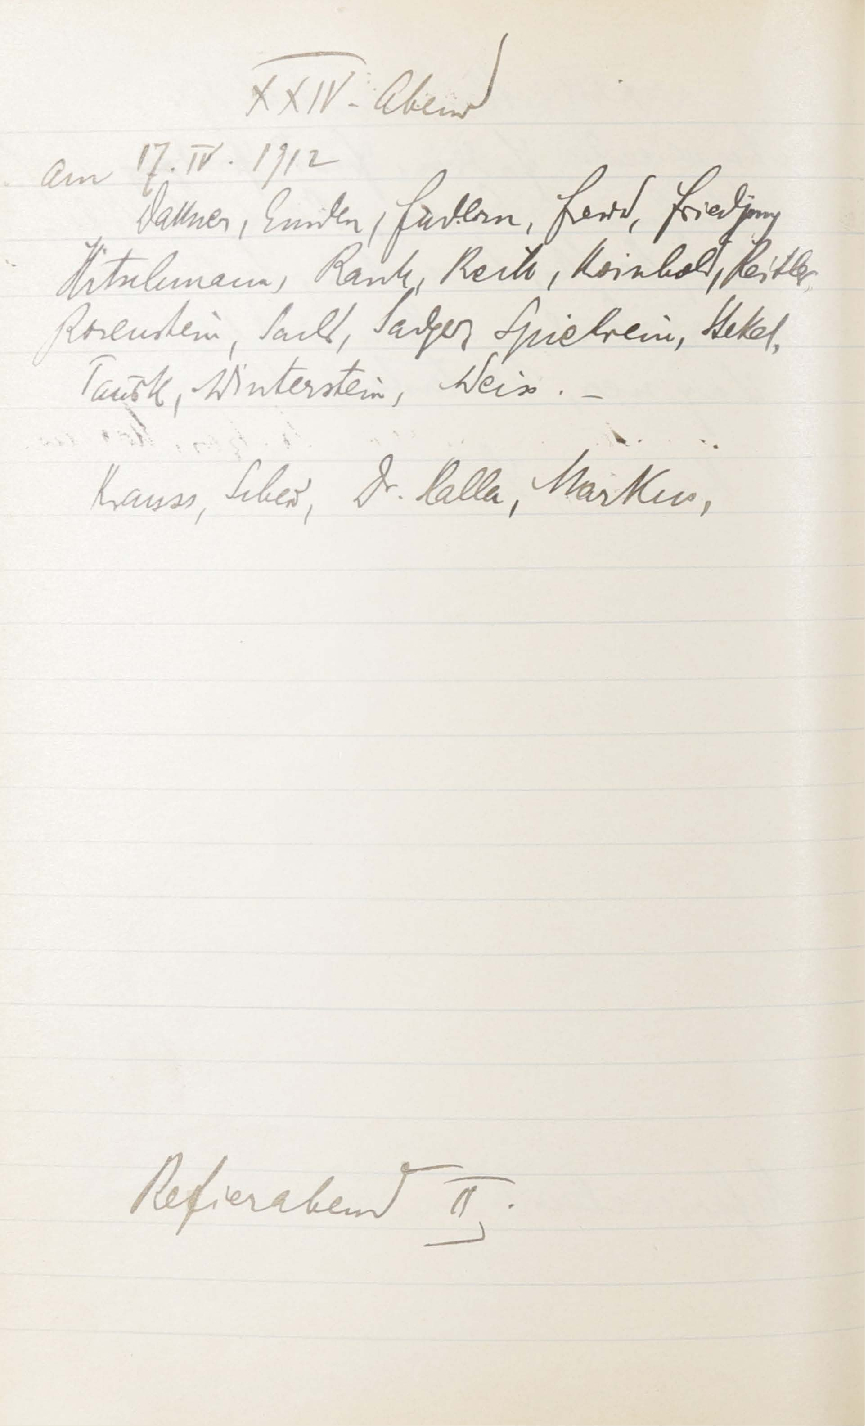 XXIV. Abend
am 17. IV. 1912
Dattner, Emden, Federn, Freud, Friedjung
Hitschmann, Rank, Reik, Reinhold, Reitler,
Rosenstein, Sachs, Sadger, Spielrein, Stekel,
Tausk, Winterstein, Weiss. –
Krauss, Silberer, Dr. Halla, Markus,
Referierabend II.